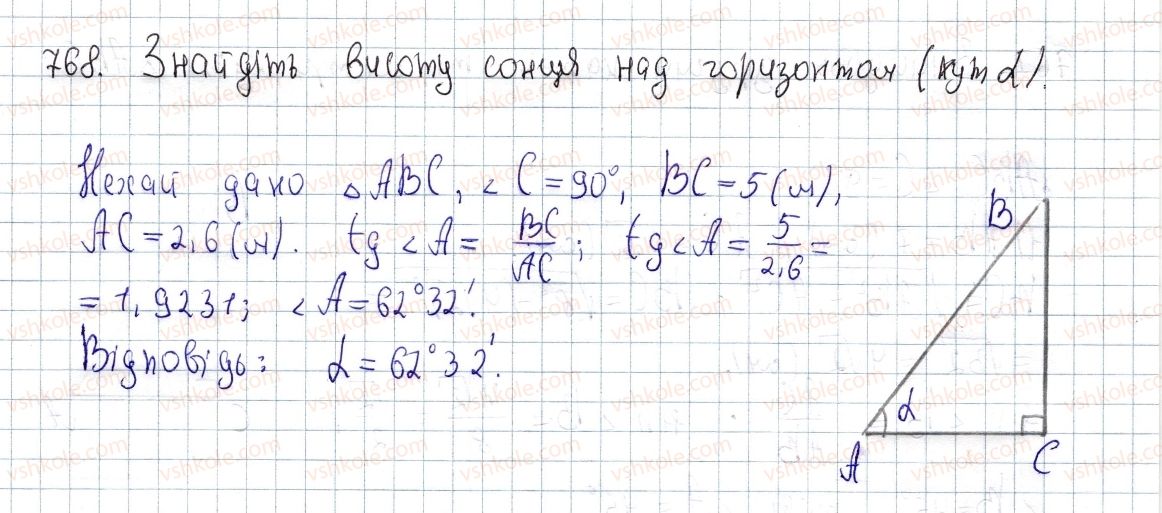 768. Знайдіть висоту сонця над горизонтом (кут α).
Нехай дано △ABC, ∠C = 90°, BC = 5 (м),
AC = 2,6 (м). tg ∠A = BC/AC; tg ∠A = 5/2,6 =
= 1,9231; ∠A = 62°32'.
Відповідь: α = 62°32'.
B
α
A
C
vshkole.com